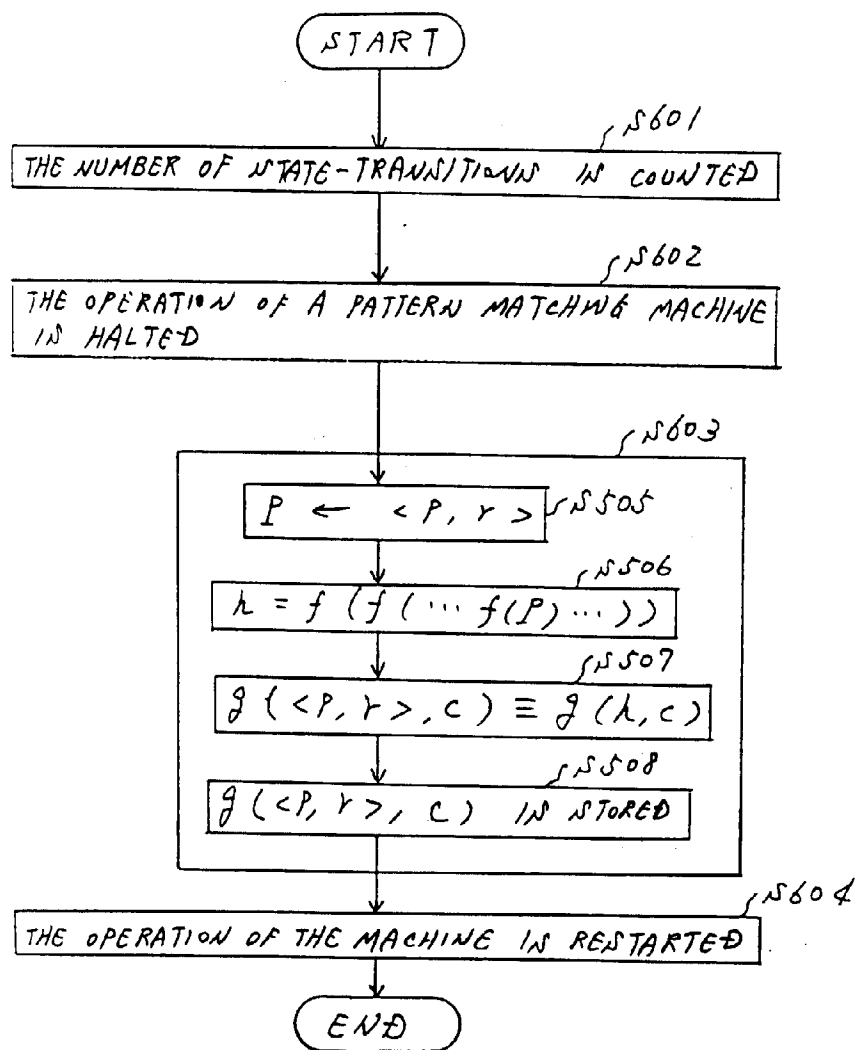 START
S601
THE NUMBER OF STATE-TRANSITIONS IS COUNTED
S602
THE OPERATION OF A PATTERN MATCHING MACHINE
IS HALTED
S603
P ← <P, r> S505
S506
h = f (f (... f(P) ...))
S507
g (<P, r>, c) ≡ g (h, c)
S508
g (<P, r>, c) IS STORED
S604
THE OPERATION OF THE MACHINE IS RESTARTED
END